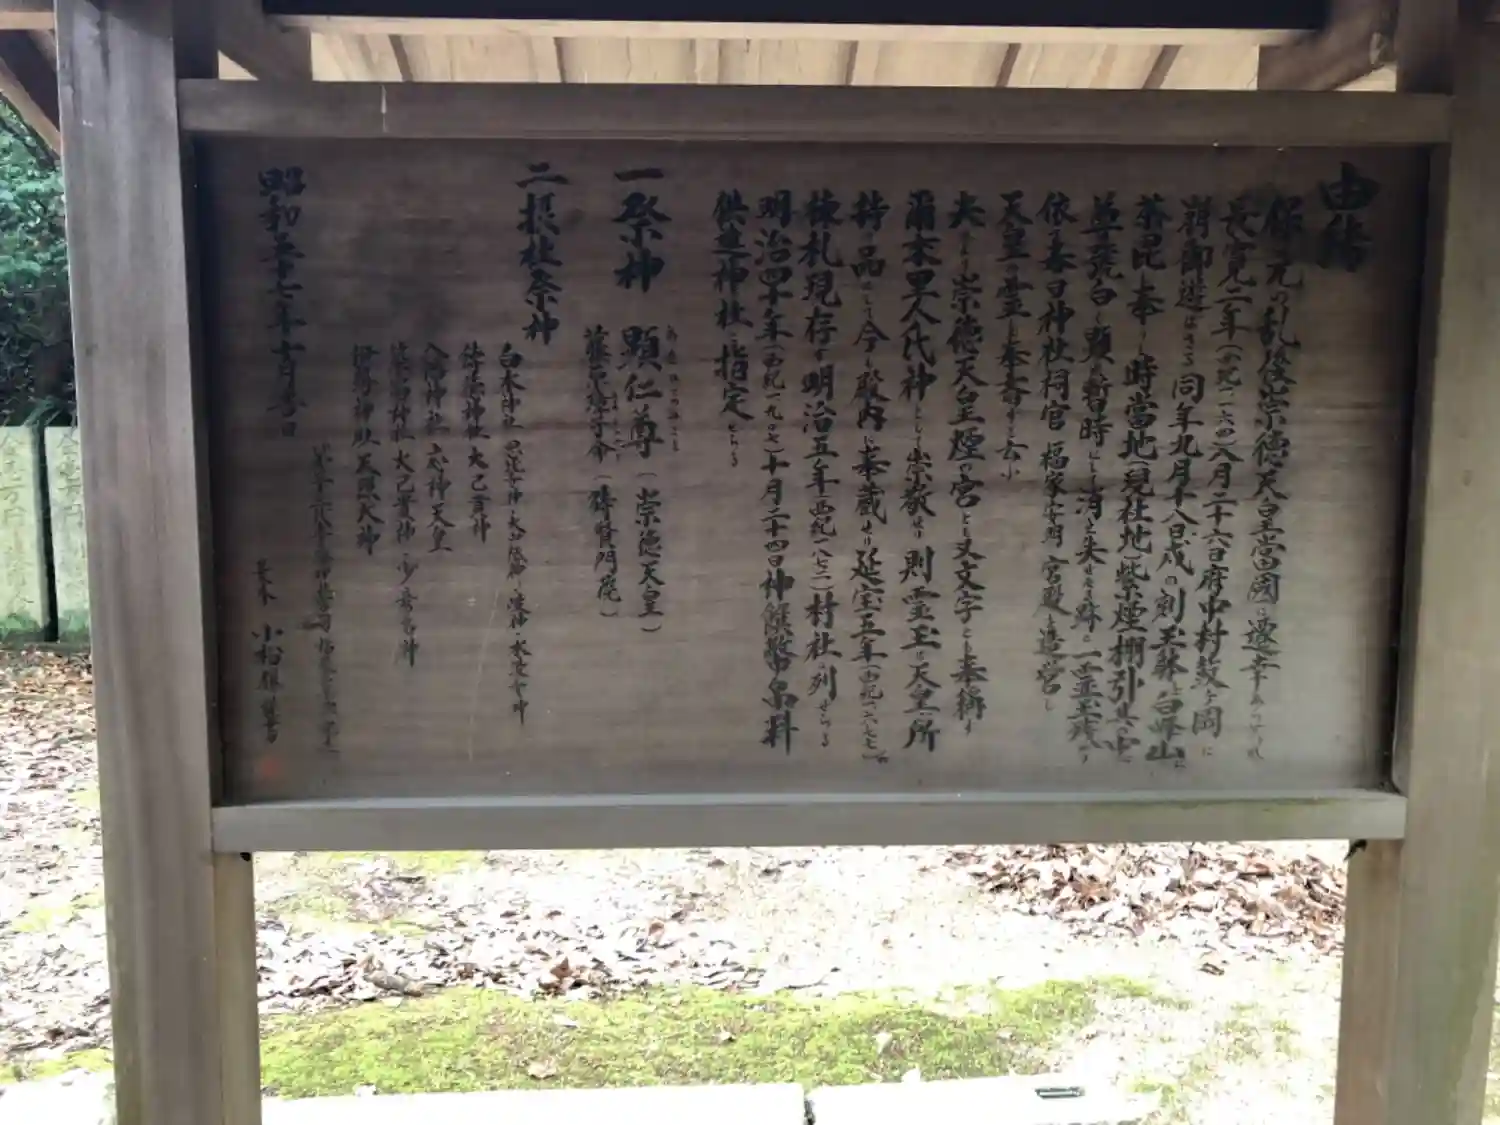 由緒
保元の乱後崇徳天皇當國に遷幸ありしが
長寛二年(西紀一一六四)八月二十六日府中村鼓ヶ岡に
崩御遊ばさる同年九月十八日戌の刻玉躰を白峰山に
荼毘し奉りし時當地(現社地)紫煙棚引き其の中に
尊號白く顕れ暫時にして消え失せたる跡に一霊玉残れり
依て春日神社祠官 福家安明 宮殿を造営し
天皇の霊を奉斎すと云ふ
夫より崇徳天皇煙の宮とも又文字とも奉称す
爾来里人氏神として崇敬せり 則霊玉は天皇所
持の品にして今も殿内に奉蔵せり延宝五年(西紀一六七七)の
棟札現存す明治五年(西紀一八七二)村社に列せらる
明治四十年(西紀一九〇七)十月二十四日神饌幣帛料
供進神社に指定せらる
一祭神 顕仁尊(崇徳天皇)
藤原璋子命(待賢門院)
二摂社祭神
白木神社
大己貴神
八幡神社 応神天皇
神社 大己貴神・少彦名神
神社 天照大神
昭和五十七年十月吉日